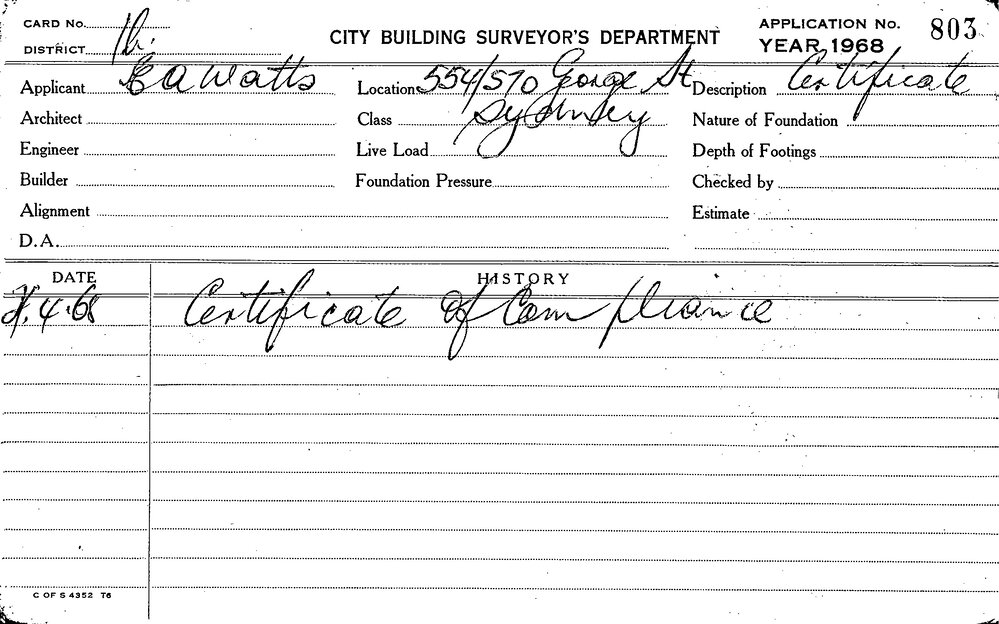 CARD No.
DISTRICT
CITY BUILDING SURVEYOR'S DEPARTMENT
APPLICATION No. 803
YEAR 1968
Applicant E A Watts
Location 554/570 George St
Sydney
Description Certificate
Architect
Class
Nature of Foundation
Engineer
Live Load
Depth of Footings
Builder
Foundation Pressure
Checked by
Alignment
Estimate
D.A.
DATE
HISTORY
4.68 Certificate of Compliance
C OF S 4352 T6